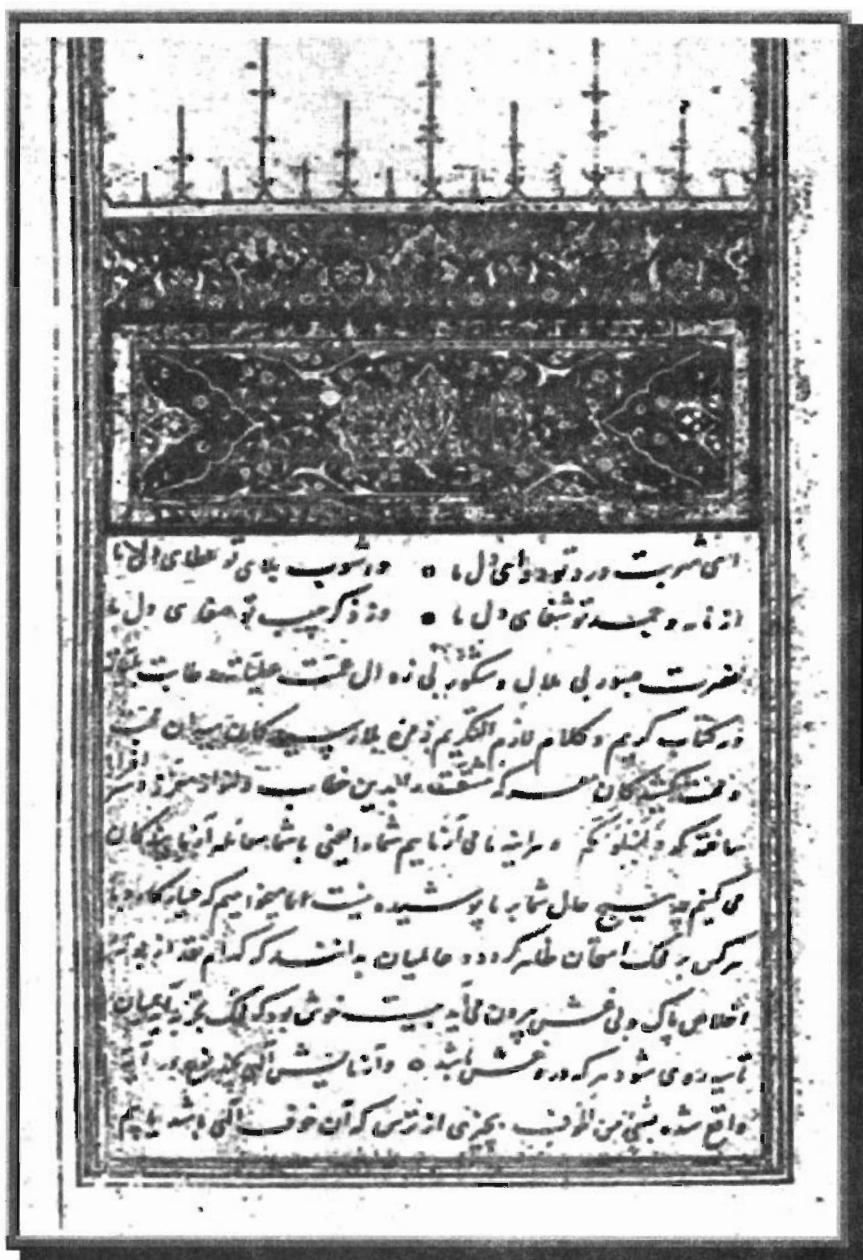 ای شربت درد تو دوای دل ما • و آشوب بلای تو عطای دل ما
از نامه و حمد تو شفای دل ما • وز ذکر حبیب تو صفای دل ما
حضرت صبور بی ملال و شکور بی زوال عمت عطیاته و طابت بلیاته
در کتاب کریم و کلام لازم التکریم زمره بلا رسیدگان میدان
و محنت کشیدگان معرکه را بدین خطاب
ساخته که و لنبلونکم و هراینه ما می آزماییم شما را یعنی با شما معامله آزمایندگان
می کنیم چه هیچ حال شما بر ما پوشیده نیست اما میخواهیم که عیار کار
هر کس بر محک امتحان ظاهر گردد و عالمیان بدانند که کدام نقد از بوته
اخلاص پاک و بی غش بیرون می آید بیت خوش بود گر محک تجربه آید بمیان
تا سیه روی شود هر که درو غش باشد ه و آزمایش الهی بچند نوع
واقع شده بشیء من الخوف بچیزی از ترس که آن خوف الهی باشد یا بیم